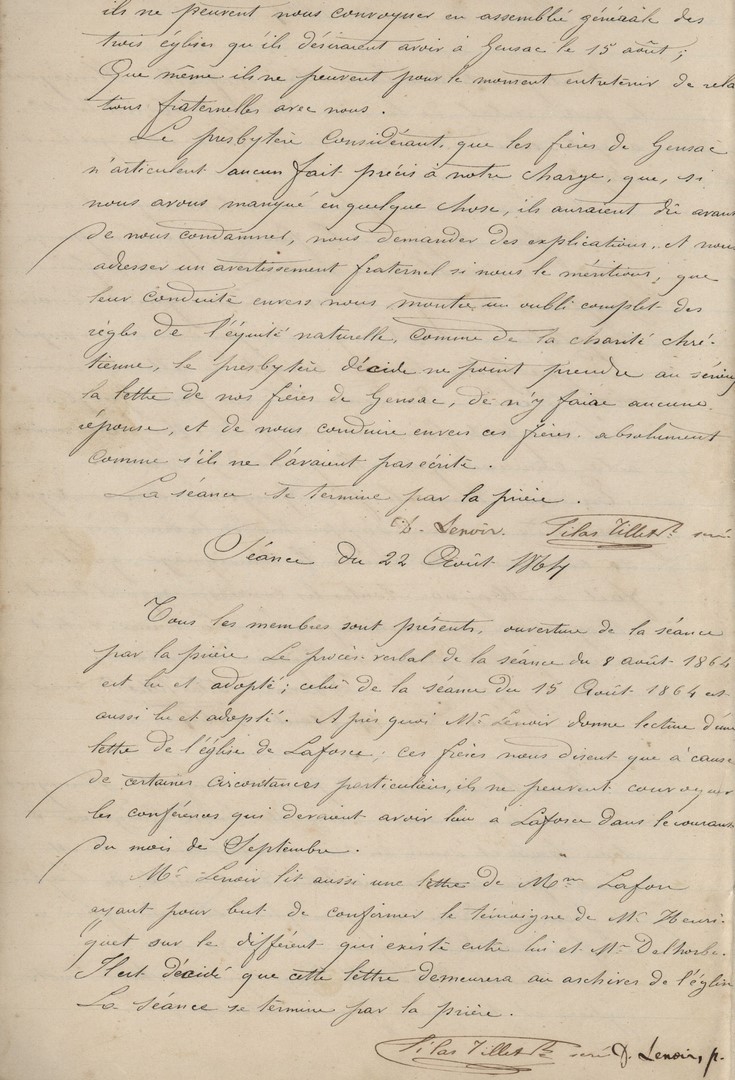 ils ne peuvent nous convoquer en assemblée générale des
trois églises qu'ils désiraient avoir à Gensac le 15 août;
Que même ils ne peuvent pour le moment entretenir de rela
tions fraternelles avec nous.
Le presbytère considérant, que les frères de Gensac
n'articulent aucun fait précis à notre charge, que, si
nous avons manqué en quelque chose, ils auraient dû avant
de nous condamner, nous demander des explications, et nous
adresser un avertissement fraternel si nous le méritions, que
leur conduite envers nous montre un oubli complet des
règles de l'équité naturelle, comme de la charité chré-
tienne, le presbytère décide ne point prendre au sérieux
la lettre de nos frères de Gensac, de n'y faire aucune
réponse, et de nous conduire envers ces frères absolument
comme s'ils ne l'avaient pas écrite.
La séance se termine par la prière.
D. Lenoir. Silas Tillet secré.
Séance du 22 Août 1864
Tous les membres sont présents, ouverture de la séance
par la prière Le procès-verbal de la séance du 8 août 1864
est lu et adopté; celui de la séance du 15 Août 1864 est
aussi lu et adopté. Après quoi Mr Lenoir donne lecture d'une
lettre de l'église de Laforce; ces frères nous disent que à cause
de certaines circontances particulières, ils ne peuvent convoquer
les conférences qui devaient avoir lieu à Laforce dans le courant
du mois de Septembre.
Mr Lenoir lit aussi une lettre de Mme Lafon
ayant pour but de confirmer le témoigne de Mr Henri-
quet sur le différent qui existe entre lui et Mr Delhorbe.
Il est décidé que cette lettre demeurera au archives de l'église
La séance se termine par la prière.
Silas Tillet secré D. Lenoir, p.